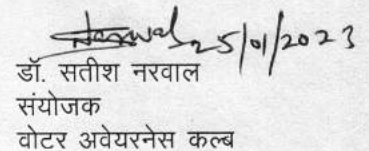 25/01/2023
डॉ. सतीश नरवाल
संयोजक
वोटर अवेयरनेस कल्ब